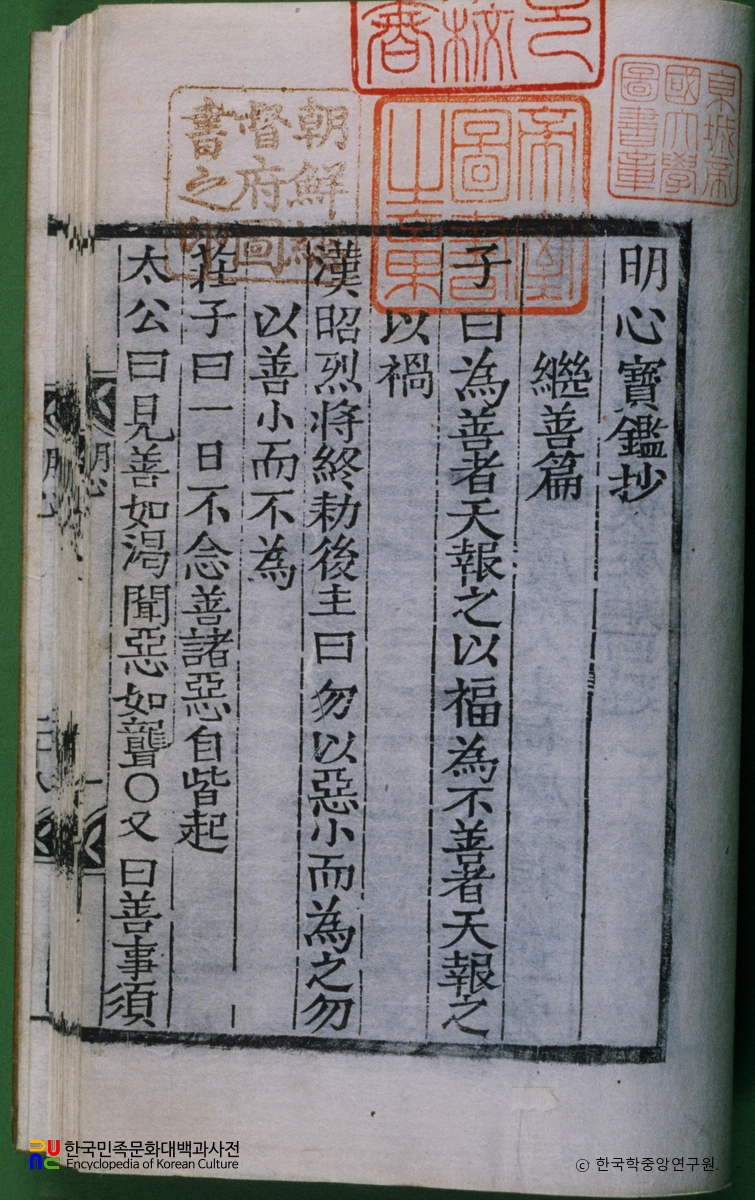 明心寶鑑抄
繼善篇
子曰為善者天報之以福為不善者天報之
以禍
漢昭烈將終勑後主曰勿以惡小而為之勿
以善小而不為
莊子曰一日不念善諸惡自皆起
太公曰見善如渴聞惡如聾〇又曰善事須
明心
朝鮮總
督府圖
書之印
京城帝
國大學
圖書章
帝室
圖書
之章
한국민족문화대백과사전
Encyclopedia of Korean Culture
© 한국학중앙연구원.